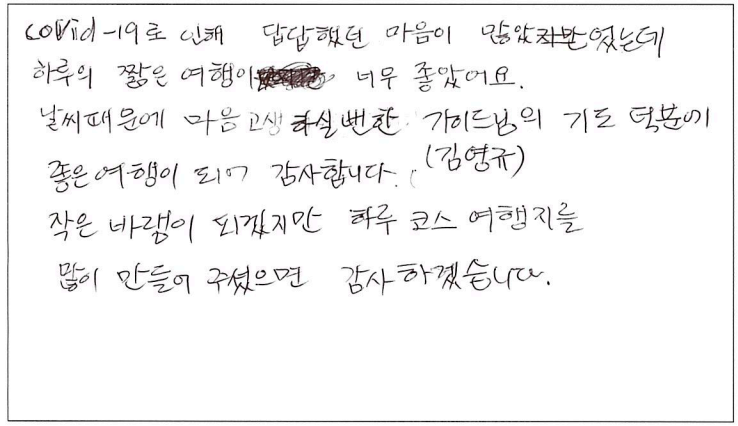 covid-19로 인해 답답했던 마음이 많았었는데
하루의 짧은 여행이 너무 좋았어요.
날씨때문에 마음고생 하실뻔한 가이드님의 기도 덕분에
(김영규)
좋은여행이 되어 감사합니다.
작은 바램이 되겠지만 하루 코스 여행지를
많이 만들어 주셨으면 감사하겠습니다.